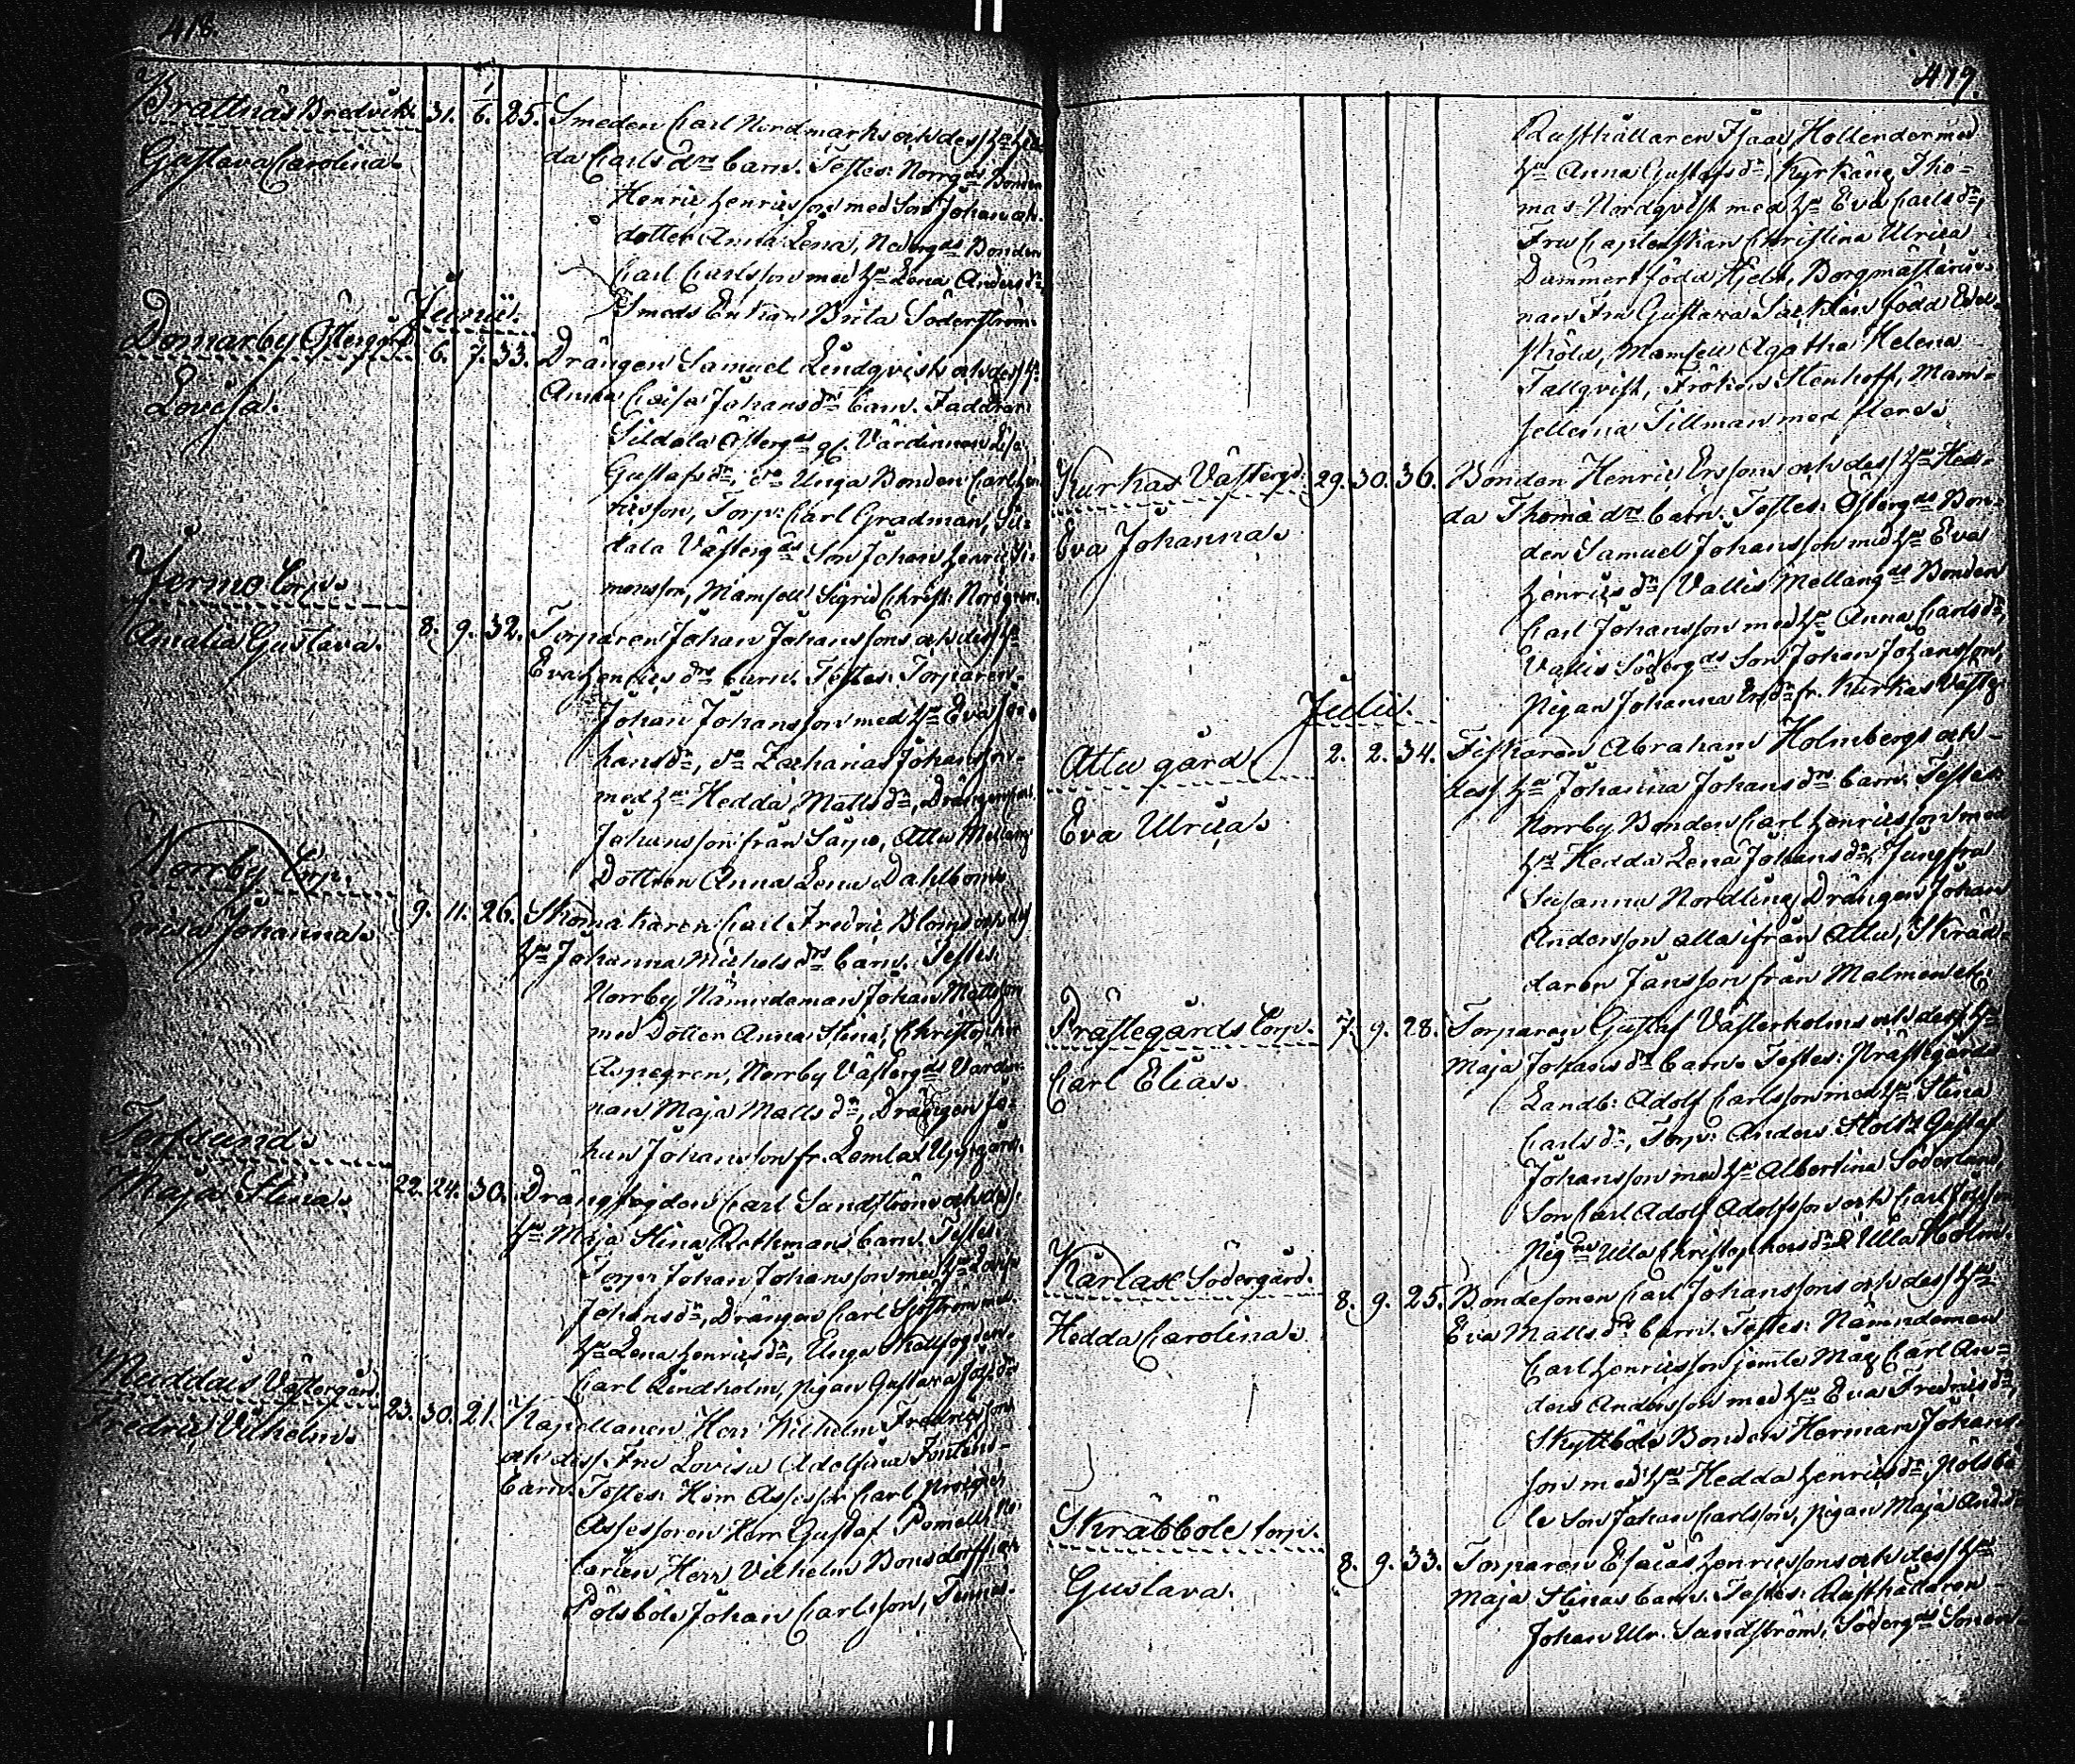 418.
Brattnäs Bredvik. 31. 1/6. 25. Smeden Carl Nordmarks och dess H:u
Gustava Carolina. da Carls drs barn. Testes: Norrgds Bonden
Henric Henricsson med Son Johan och
dotter Anna Lena, Bonden
Carl Carlsson med Hu Lena Anders dr,
Smeds Enkan Brita Söderström.
Junii.
Domarby Östergård 6. 7. 33. Drängen Samuel Lindqvists och dess H:
Lovisa. Anna Caisa Johans drs barn. Faddrar:
Sildala Östergds gl. Värdinnan Lisa
Gustafs dr, do Unga Bonden Carl Hen
ricsson, Torp: Carl Gradman, Sil-
dala Västergds Son Johan Henric Si-
monsson, Mamsell Sigrid Christ: Nordgren.
Jermo torp.
Amalia Gustava. 8. 9. 32. Torparen Johan Johanssons och dess Hu
Eva Henrics drs barn. Testes: Torparen
Johan Johansson med Hu Eva Jo-
hans dr, do Zacharias Johansson
med Hu Hedda Matts dr, Drängen
Johansson från Sarpo, Attu Mellang
Dottren Anna Lena Dahlbom.
Norrby torp.
Lovisa Johanna. 9. 11. 26. Skomakaren Carl Fredric Bloms och dess
Hu Johanna Michels drs barn. Testes:
Norrby Nämndeman Johan Mattsson
med Dotter Anna Stina, Christopher
Aspegren, Norrby Västergds Värdin-
nan Maja Matts dr, Drängen Jo-
han Johansson fr. Lemlax Uppgård.
Terfsund.
Maja Stina. 22. 24. 30. Drängfogden Carl Sandströms och dess
Hu Maja Stina Rothmans barn. Testes:
Torp: Johan Johansson med Hu Lovisa
Johans dr, Drängen Carl Sjöström med
Hu Lena Henrics dr, Unga
Carl Lindholm, pigan Gustava Joh: dr
Muddais Västergård.
Fredric Vilhelm. 23. 30. 21. Kapellanen Herr Wilhelm Fredricssons
och dess Fru Lovisa Adolfina
Barn. Testes: Herr Assessor Carl
Assessoren Herr Gustaf
Herr Vilhelm Bonsdorff och
Pölsböle Johan Carlsson,
419.
Rusthållaren Isaac Hollender med
Hu Anna Gustafs dr, Kyrkång. Tho-
mas Nordqvist med Hu Eva Carls dr,
Fru Caplenskan Christina Ulrica
Dammert född Hjelt, Borgmästarin-
nan Fru Gustava född Edel-
sköld, Mamsell Agatha Helena
Tallqvist, Fröken Stenhoff, Mam-
sellerna Tillman med flere.
Kurkas Västergd. 29. 30. 36. Bonden Henric Erssons och dess Hu Hed-
Eva Johanna. da Thomæ drs barn. Testes: Östergds Bon-
den Samuel Johansson med Hu Eva
Henrics dr, Vallis Mellangds Bonden
Carl Johansson med Hu Anna Carls dr,
Vallis Södergds Son Johan Johansson,
Pigan Johanna Ers dr fr. Kurkas Västg.
Julii.
Attu gård. 2. 2. 34. Fiskaren Abraham Holmbergs och
Eva Ulrica. dess Hu Johanna Johans drs barn. Testes:
Norrby Bonden Carl Henricsson med
Hu Hedda Lena Johans dr, Jungfru
Susanna Nordling, Drängen Johan
Andersson alla ifrån Attu, Skräd-
daren Jansson från Malmen etc.
Prästegårds torp. 7. 9. 28. Torparen Gustaf Västerholms och dess Hu
Carl Elias. Maja Johans drs barn. Testes: Prästegårds
Landb: Adolf Carlsson med Hu Stina
Carls dr, Torp: Anders Holtz Gustaf
Johansson med Hu Albertina Söderlund,
Son Carl Adolf Adolfsson och Carl
Pig: Ulla Christophers dr Ulla Holm.
Kärlax Södergård. 8. 9. 25. Bondesonen Carl Johanssons och dess Hu
Hedda Carolina. Eva Matts drs barn. Testes: Nämndeman
Carl Henricsson jemte Måg Carl An-
ders Andersson med Hu Eva Fredrics dr,
Skyttböle Bonden Herman Johans-
son med Hu Hedda Henrics dr, Pölsbö-
le Son Johan Carlsson, pigan Maja Anders
Skräbböle torp. 8. 9. 33. Torparen Esaias Henricssons och dess Hu
Gustava. Maja Stinas barn. Testes: Rusthållaren
Johan Ulr. Sandström, Södergds Sonen